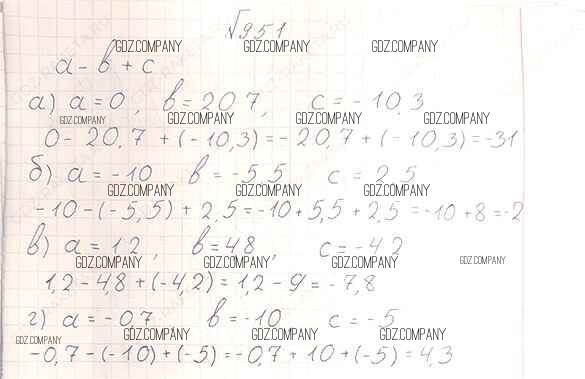 №951
GDZ.COMPANY GDZ.COMPANY GDZ.COMPANY
a - b + c
а) a = 0, b = 20,7, c = - 10,3
GDZ.COMPANY GDZ.COMPANY GDZ.COMPANY GDZ.COMPANY
0 - 20,7 + (- 10,3) = - 20,7 + (- 10,3) = -31
б) a = -10 b = -5,5 c = 2,5
GDZ.COMPANY GDZ.COMPANY GDZ.COMPANY
-10 - (-5,5) + 2,5 = -10 + 5,5 + 2,5 = -10 + 8 = -2
в) a = 1,2, b = 4,8, c = -4,2
GDZ.COMPANY GDZ.COMPANY GDZ.COMPANY GDZ.COMPANY
1,2 - 4,8 + (-4,2) = 1,2 - 9 = -7,8
г) a = -0,7 b = -10 c = -5
GDZ.COMPANY GDZ.COMPANY GDZ.COMPANY GDZ.COMPANY
-0,7 - (-10) + (-5) = -0,7 + 10 + (-5) = 4,3